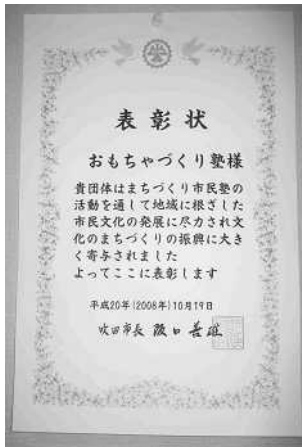 表彰状
おもちゃづくり塾様
貴団体はまちづくり市民塾の
活動を通して地域に根ざした
市民文化の発展に尽力され文
化のまちづくりの振興に大き
く寄与されました
よってここに表彰します
平成20年(2008年)10月19日
吹田市長 阪口善雄